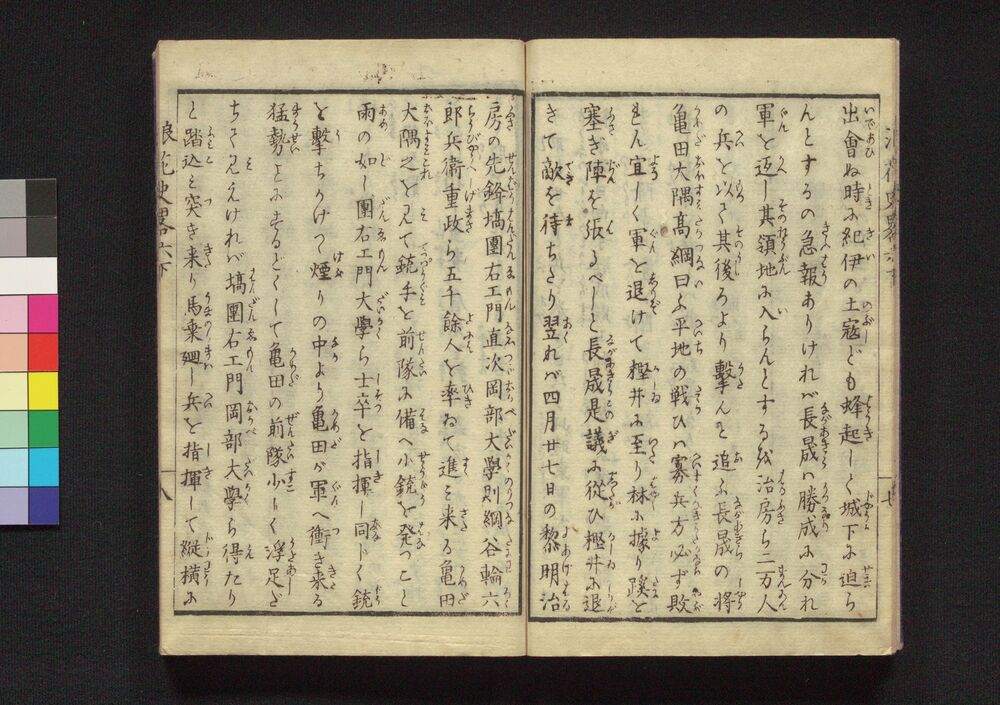 出會ぬ時に紀伊の土寇ども蜂起しく城下に迫ら
んとするの急報ありけれバ長晟ハ勝成に分れ
軍を返し其領地に入らんとする越治房ら二万人
の兵を以て其後ろより擊んと追ふ長晟の将
亀田大隅高綱曰ふ平地の戦ひハ寡兵方必ず敗
もん宜しく軍を退けて樫井に至り林に據り蹊を
塞ぎ陣を張るべしと長晟是議に從ひ樫井に退
きて敵を待ちたり翌れバ四月廿七日の黎明治
房の先鋒塙團右エ門直次岡部大學則綱谷輪六
郎兵衛重政ら五千餘人を率ゐて進み来る亀田
大隅之を見て銃手を前隊に備へ小銃を発つこと
雨の如し團右エ門大學ら士卒を指揮し同じく銃
を擊ちかけつ煙りの中より亀田が軍へ衝き来る
猛勢に亀田の前隊少しく浮足だ
ちて見えけれバ塙團右エ門岡部大學ら得たり
と踏込み突き来り馬乗廻し兵を指揮して縦横に
浪花史畧六下
八